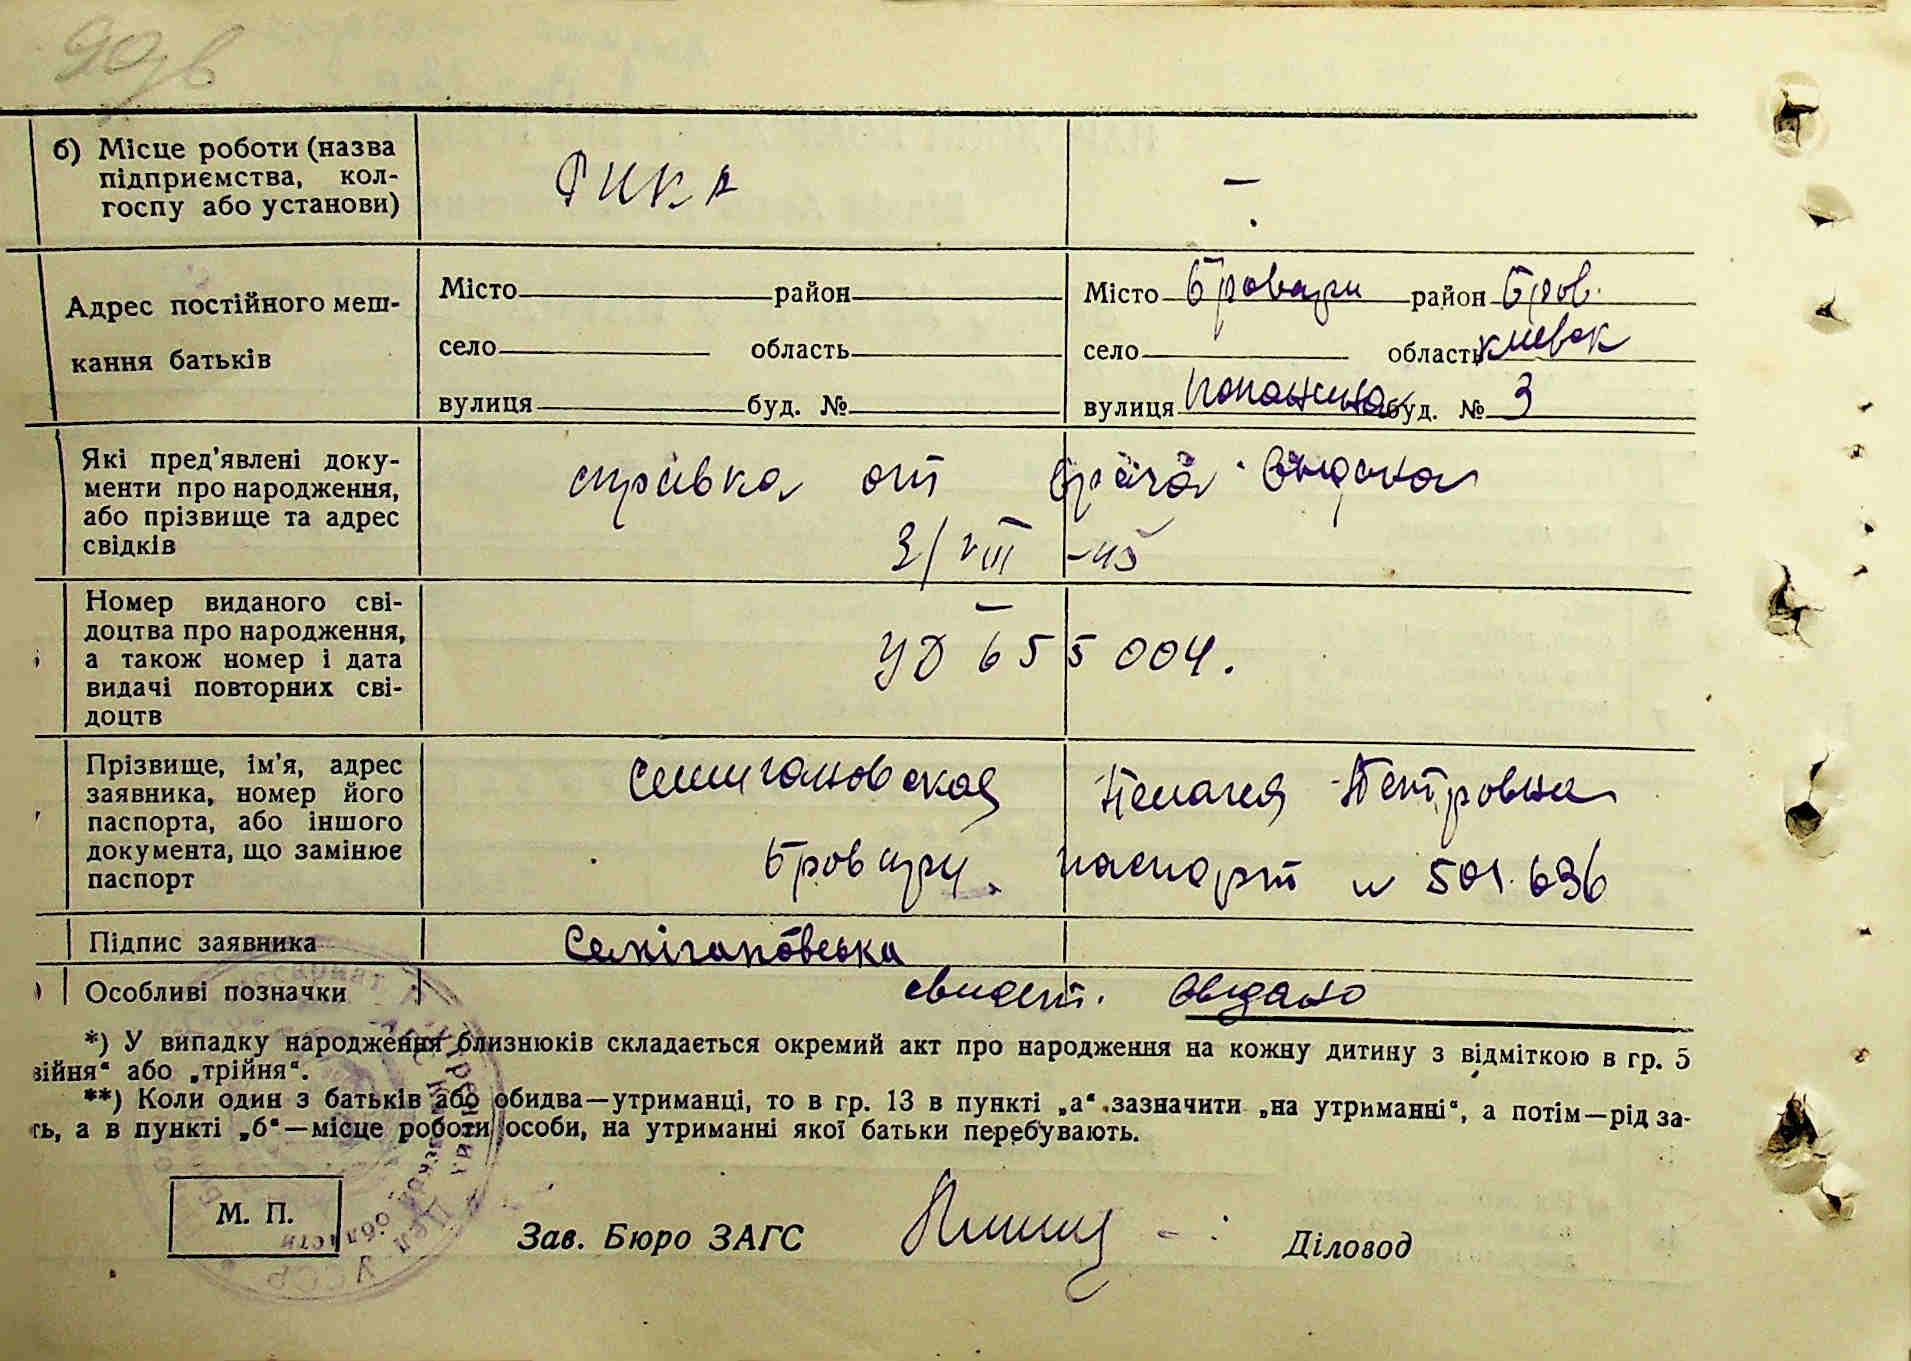 б) Місце роботи (назва
підприємства, кол-
госпу або установи)
РККА
—
Адрес постійного меш-
кання батьків
Місто район
село область
вулиця буд. №
Місто Бровари район Бров.
село область киевск
вулиця буд. № 3
Які пред'явлені доку-
менти про народження,
або прізвище та адрес
свідків
справка от врача
3/VIII -45
Номер виданого сві-
доцтва про народження,
а також номер і дата
видачі повторних сві-
доцтв
УД 655004.
Прізвище, ім'я, адрес
заявника, номер його
паспорта, або іншого
документа, що замінює
паспорт
Семигановская Пелагея Петровна
Бровары. паспорт № 501.636
Підпис заявника
Семігановська
Особливі позначки
свидет. выдано
*) У випадку народження близнюків складається окремий акт про народження на кожну дитину з відміткою в гр. 5
війня“ або „трійня“.
**) Коли один з батьків або обидва—утриманці, то в гр. 13 в пункті „а“ зазначити „на утриманні“, а потім—рід за-
ть, а в пункті „б“—місце роботи особи, на утриманні якої батьки перебувають.
М. П.
Зав. Бюро ЗАГС
Діловод